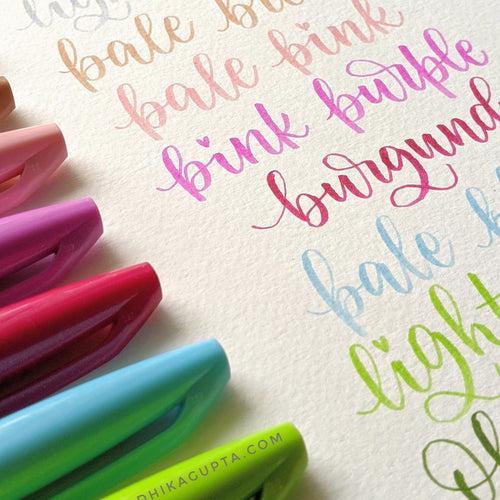 ligh
bale b
bale bink
bink burple
burgund
bale b
light
Ol
DHIKAGUPTA.COM